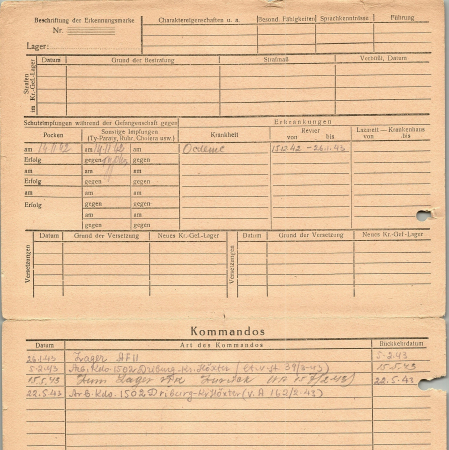 Beschriftung der Erkennungsmarke
Nr.
Lager:
Charaktereigenschaften u. a.
Besond. Fähigkeiten
Sprachkenntnisse
Führung
Strafen im Kr.-Gef.-Lager
Datum
Grund der Bestrafung
Strafmaß
Verbüßt, Datum
Schutzimpfungen während der Gefangenschaft gegen
Erkrankungen
Pocken
Sonstige Impfungen
(Ty-Paraty, Ruhr, Cholera usw.)
Krankheit
Revier
von bis
Lazarett — Krankenhaus
von bis
am 14.11.42 am 14.11.42 am Oedeme 15.12.42 - 26.1.43
Erfolg gegen gegen
am am am
Erfolg gegen gegen
am am am
Erfolg gegen gegen
am am
gegen gegen
am am
gegen gegen
Versetzungen
Datum
Grund der Versetzung
Neues Kr.-Gef.-Lager
Versetzungen
Datum
Grund der Versetzung
Neues Kr.-Gef.-Lager
Kommandos
Datum
Art des Kommandos
Rückkehrdatum
26.1.43 Lager 5.2.43
5.2.43 Arb. Kdo. 1502 Driburg-Kr. Höxter 15.5.43
15.5.43 Zum Lager 22.5.43
22.5.43 Arb. Kdo. 1502 Driburg-Kr Höxter (v. A 162/5-43)